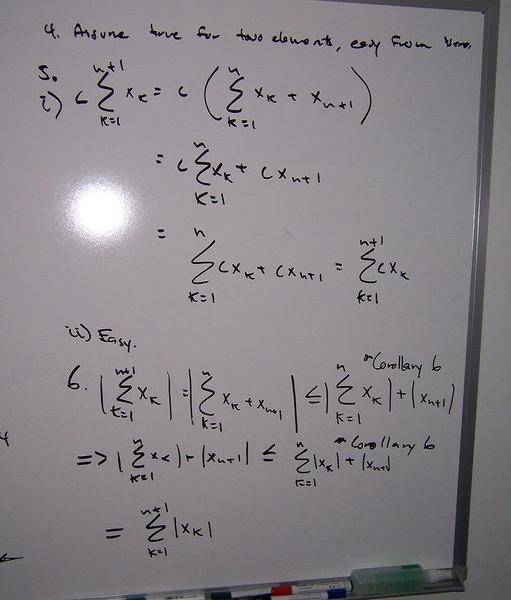 4. Assume true for two elements, easy from there.
5.
i) c ∑_{k=1}^{n+1} x_k = c ( ∑_{k=1}^{n} x_k + x_{n+1} )
= c ∑_{k=1}^{n} x_k + c x_{n+1}
= ∑_{k=1}^{n} c x_k + c x_{n+1} = ∑_{k=1}^{n+1} c x_k
ii) Easy.
Corollary 6
6. | ∑_{k=1}^{n+1} x_k | = | ∑_{k=1}^{n} x_k + x_{n+1} | ≤ | ∑_{k=1}^{n} x_k | + | x_{n+1} |
Corollary 6
4
=> | ∑_{k=1}^{n} x_k | + | x_{n+1} | ≤ ∑_{k=1}^{n} |x_k| + |x_{n+1}|
= ∑_{k=1}^{n+1} |x_k|